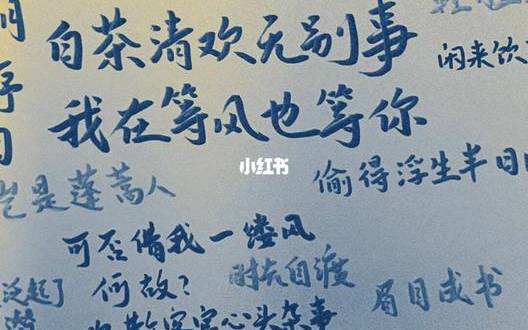 白茶清欢无别事
闲来饮
我在等风也等你
小红书
岂是蓬蒿人
偷得浮生半日
可否借我一缕风
时光自渡
何故？
眉目成书
泛起了
心头杂事